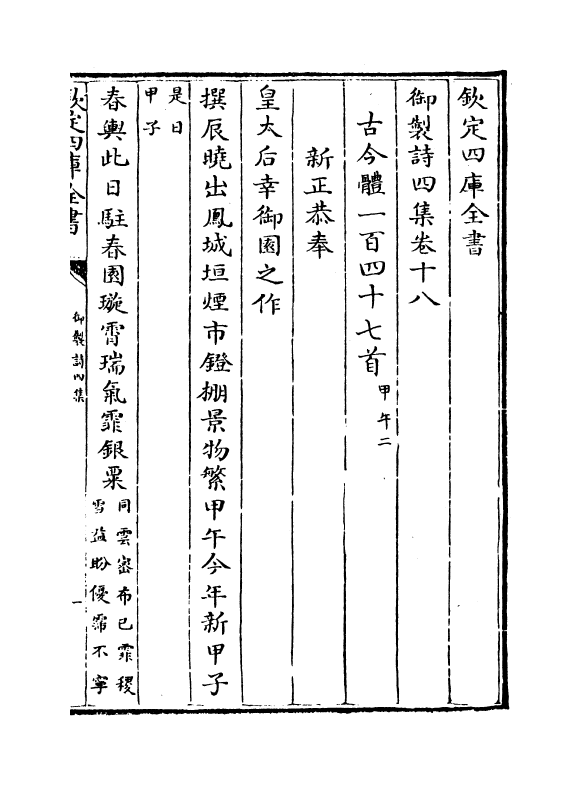 欽定四庫全書
御製詩四集卷十八
古今體一百四十七首甲午二
新正恭奉
皇太后幸御園之作
撰辰曉出鳳城垣煙市鐙棚景物繁甲午今年新甲子
是日
甲子
春輿此日駐春園璇霄瑞氣霏銀粟同雲密布已霏稷
雪益盼優霈不寧
欽定四庫全書
御製詩四集
一